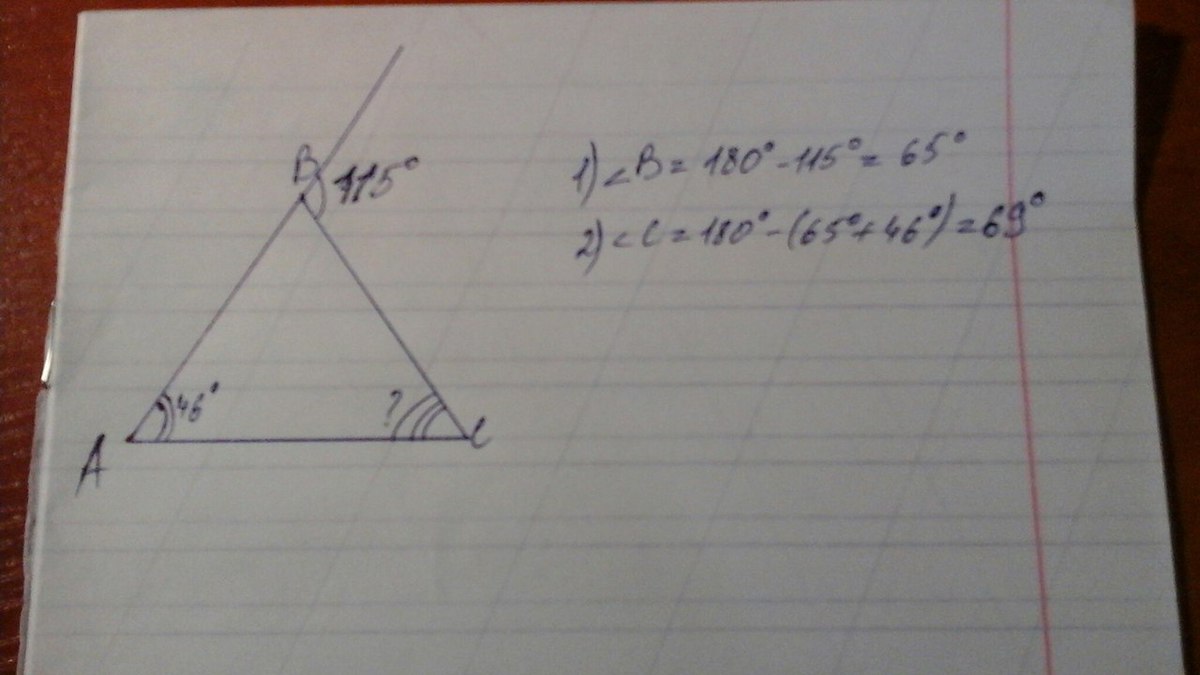 B 115°
1) <B = 180° - 115° = 65°
2) <C = 180° - (65° + 46°) = 69°
46° ?
A C